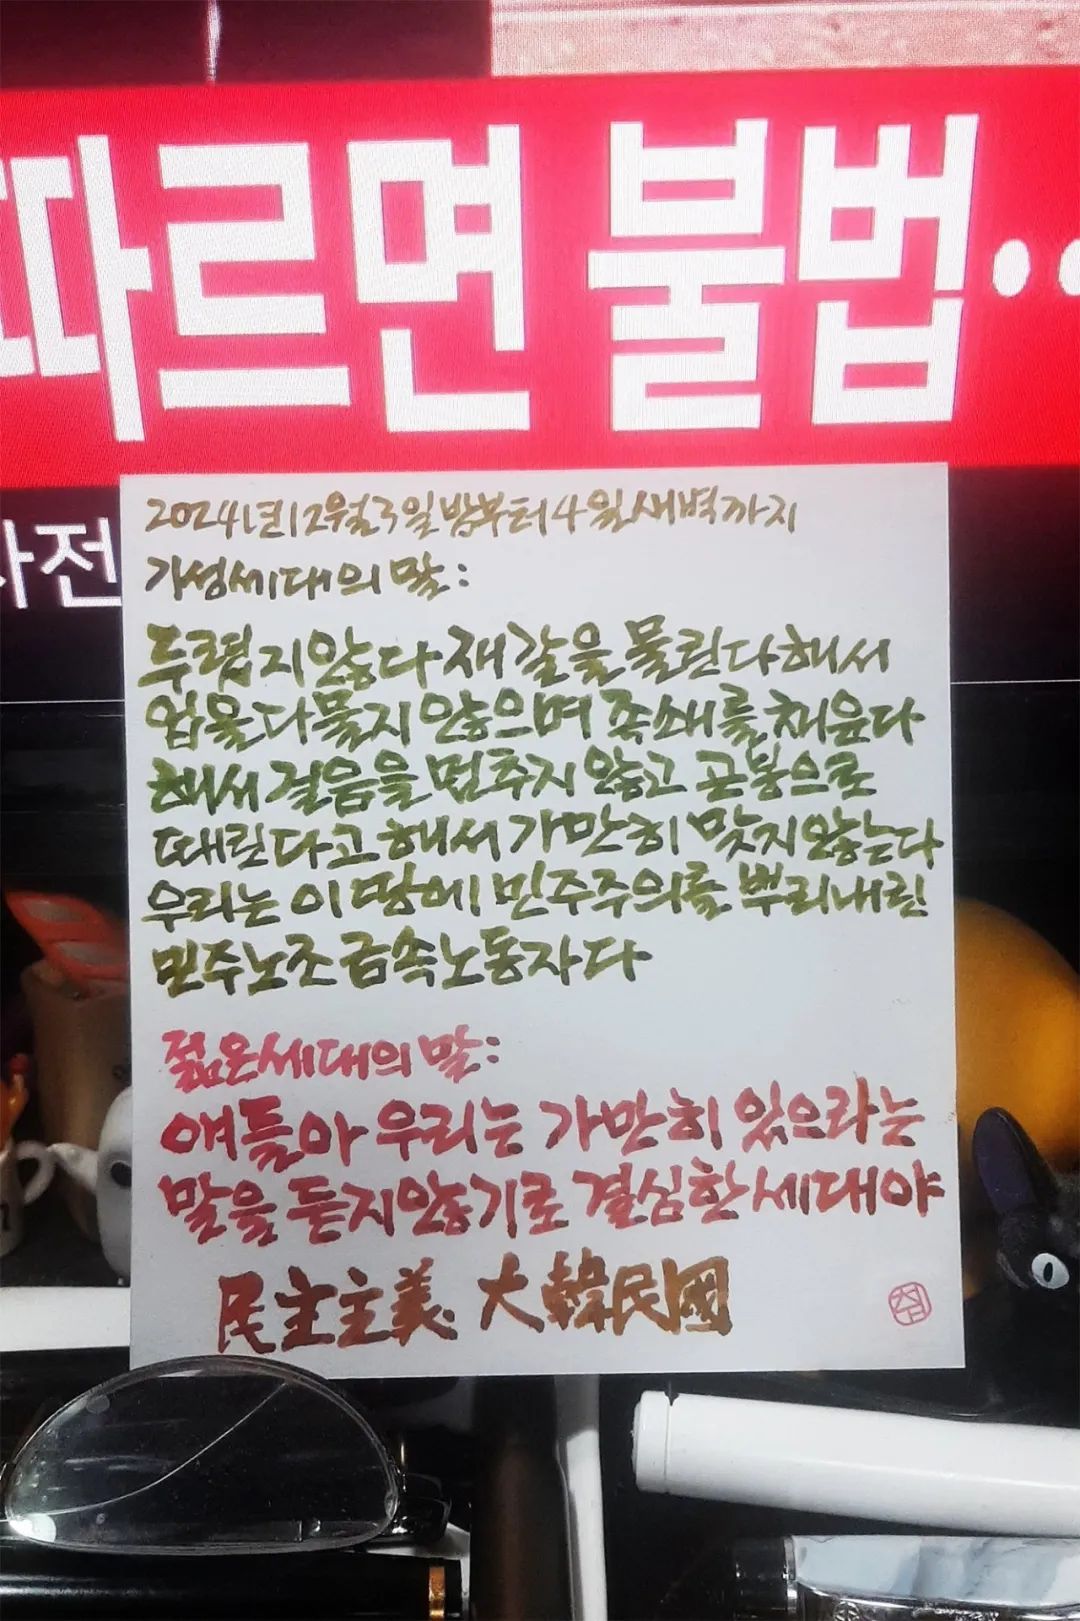 따르면 불법··
사전
2024년 12월 3일 밤부터 4일 새벽까지
기성세대의 말:
두렵지 않다 재갈을 물린다해서
입을 다물지 않으며 족쇄를 채운다
해서 걸음을 멈추지 않고 곤봉으로
때린다고 해서 가만히 맞지 않는다
우리는 이 땅에 민주주의를 뿌리내린
민주노조 금속노동자다
젊은세대의 말:
얘들아 우리는 가만히 있으라는
말을 듣지않기로 결심한 세대야
民主主義 大韓民國